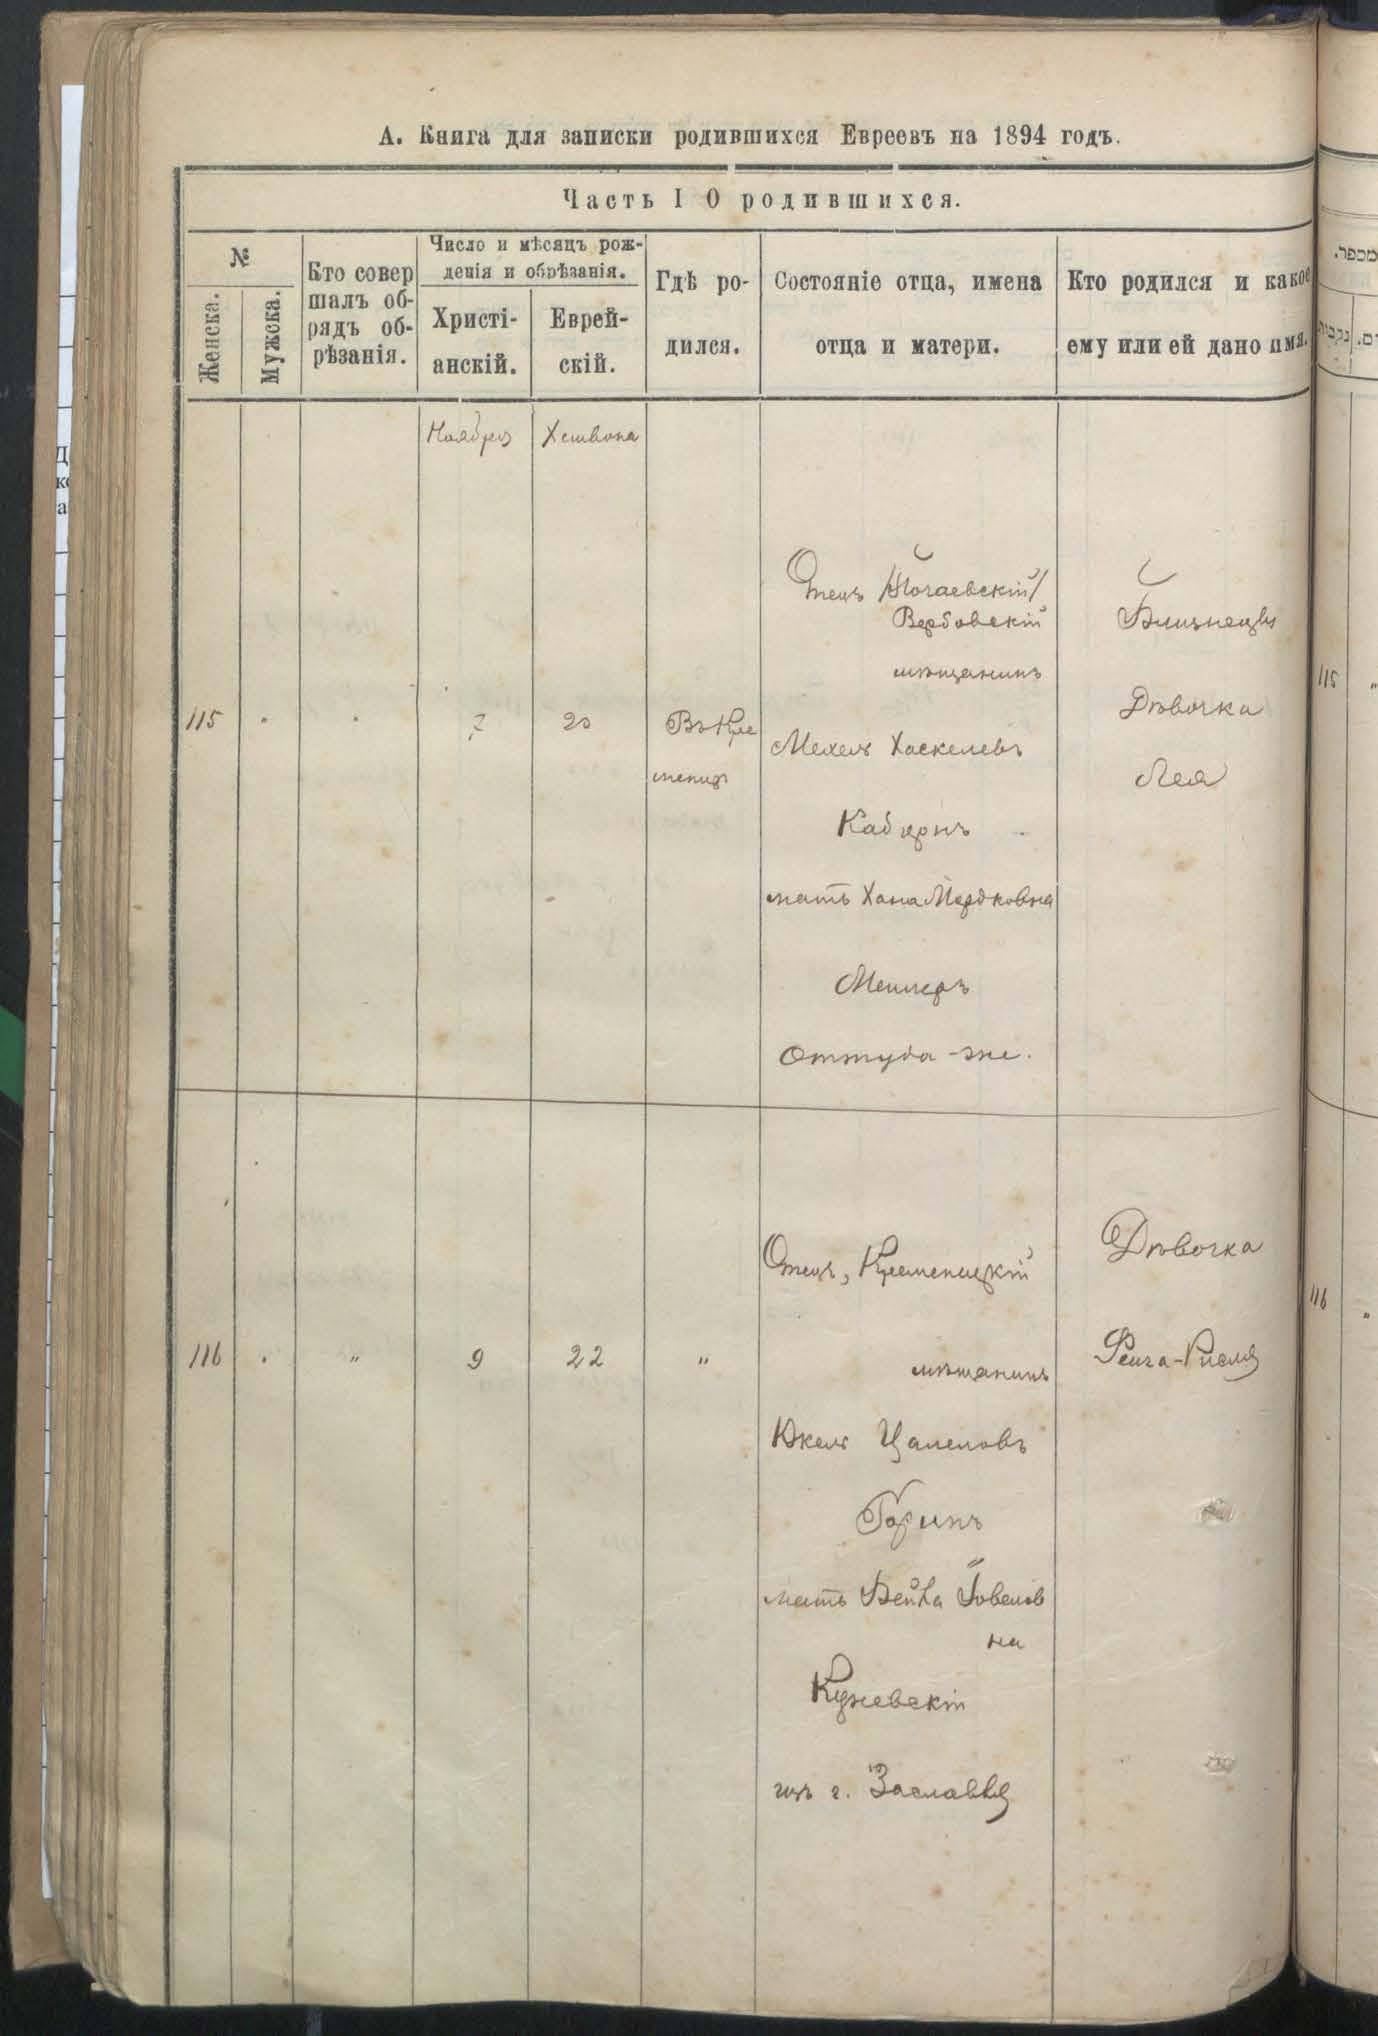 А. Книга для записки родившихся Евреевъ на 1894 годъ.
Часть I О родившихся.
№
Женска.
Мужска.
Кто совер
шалъ об-
рядъ об-
рѣзанія.
Число и мѣсяцъ рож-
денія и обрѣзанія.
Христі-
анскій.
Еврей-
скій.
Гдѣ ро-
дился.
Состояніе отца, имена
отца и матери.
Кто родился и какое
ему или ей дано имя.
Ноября
Хешвона
115
7
20
Въ Кре
менцѣ
Отецъ
Вербовскій
мѣщанинъ
Мехель Хаскелевъ
мать Хана Мордковна
Оттуда-же.
Близнецы
Дѣвочка
Лея
116
"
9
22
"
Отецъ, Кременецкій
мѣщанинъ
Юкель
Горинъ
мать Бейла
на
изъ г. Заславля
Дѣвочка
מספר.
נקבות
115
"
116
"